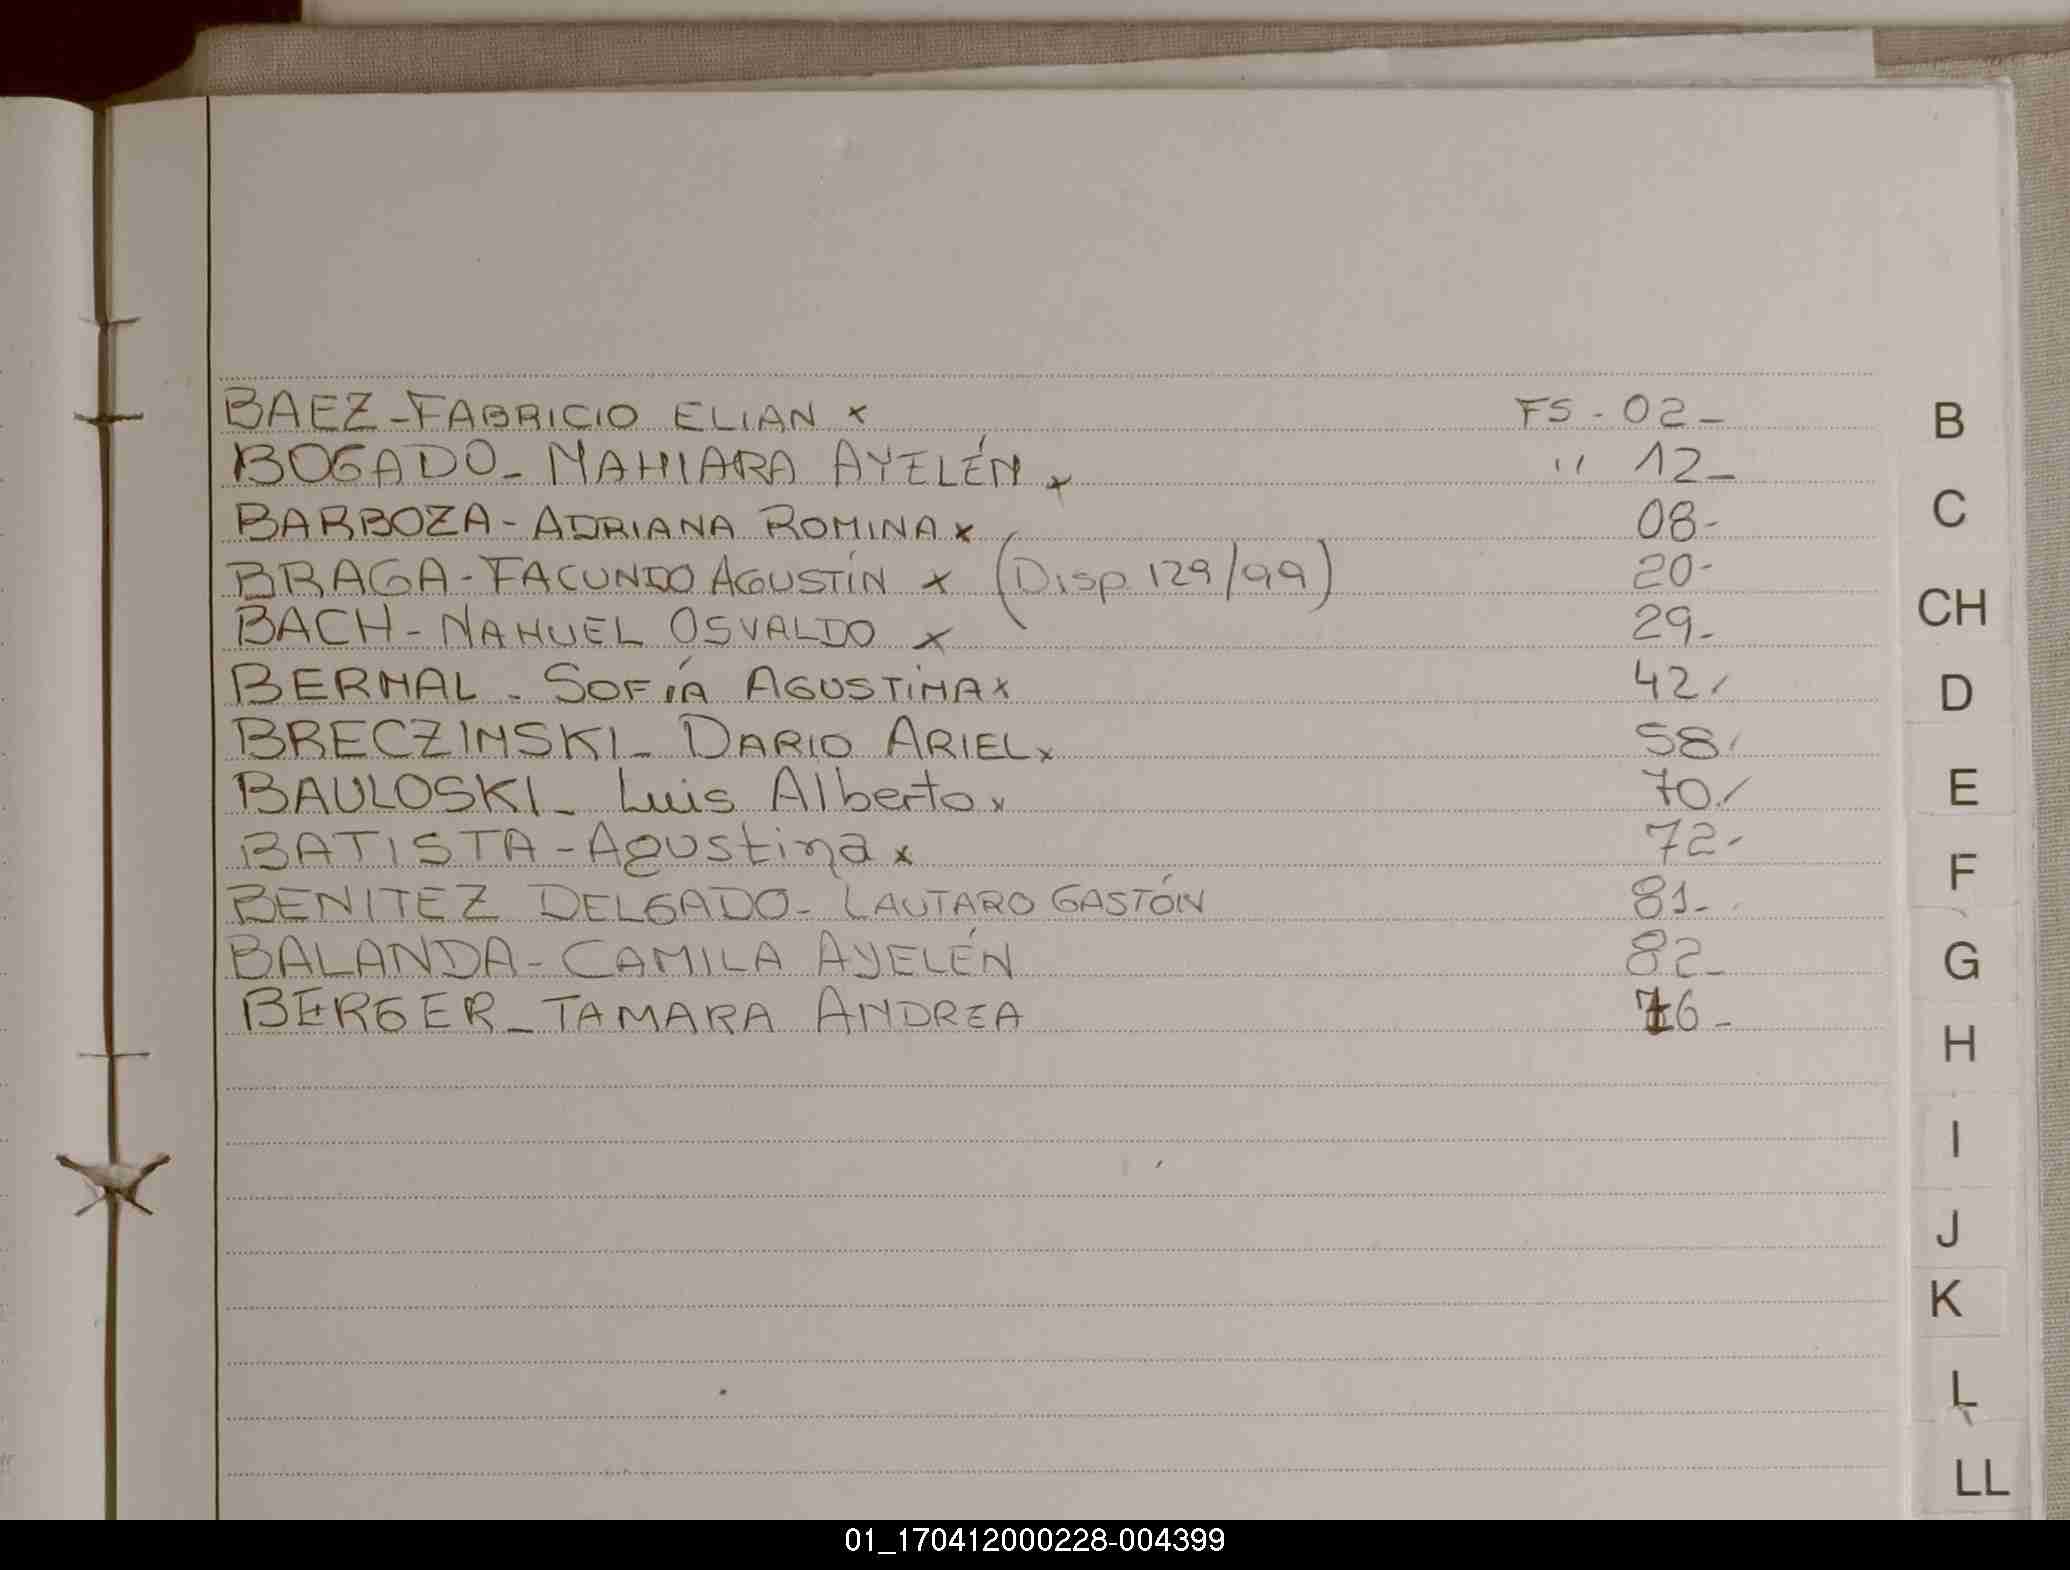 BAEZ - FABRICIO ELIAN x FS - 02 -
BOGADO - NAHIARA AYELÉN x " 12 -
BARBOZA - ADRIANA ROMINA x 08 -
BRAGA - FACUNDO AGUSTÍN x (Disp. 129/99) 20 -
BACH - NAHUEL OSVALDO x 29 -
BERNAL - SOFÍA AGUSTINA x 42 -
BRECZINSKI - DARIO ARIEL x 58 -
BAULOSKI - Luis Alberto x 70 -
BATISTA - Agustina x 72 -
BENITEZ DELGADO - LAUTARO GASTÓN 81 -
BALANDA - CAMILA AYELÉN 82 -
BERGER - TAMARA ANDREA 76 -
B
C
CH
D
E
F
G
H
I
J
K
L
LL
01_170412000228-004399